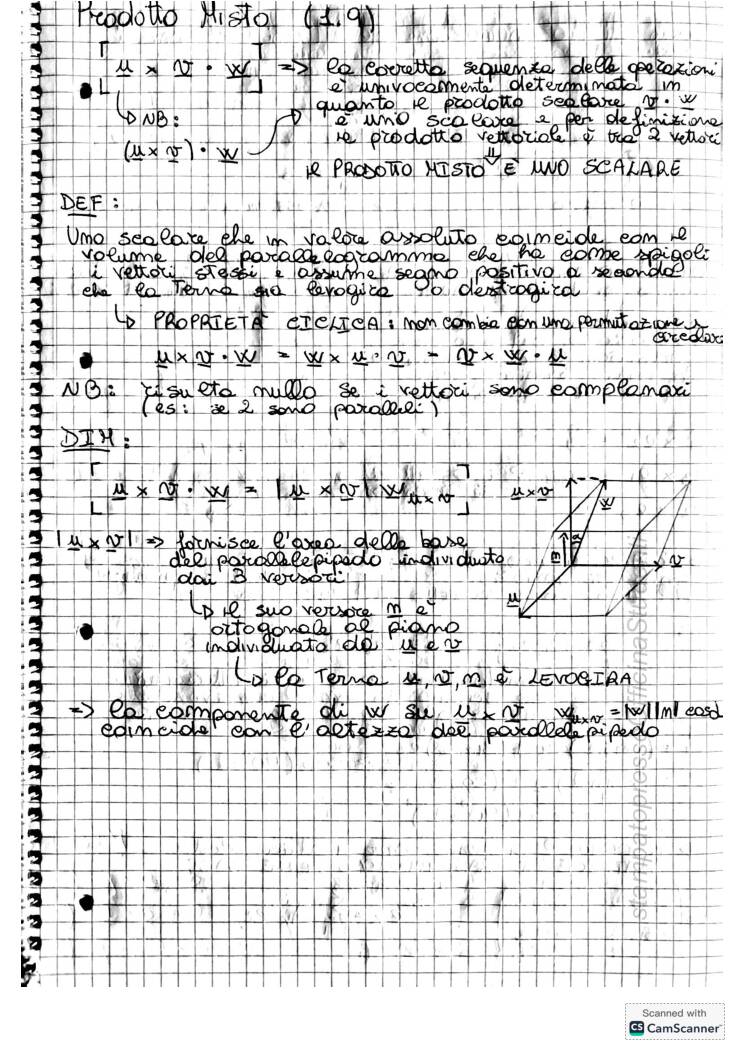 Prodotto Misto (1.9)
u × v · w => la corretta sequenza delle operazioni
è univocamente determinata in
quanto il prodotto scalare v · w
↳ NB: è uno scalare e per definizione
(u × v) · w il prodotto vettoriale è tra 2 vettori
⇓
IL PRODOTTO MISTO È UNO SCALARE
DEF:
Uno scalare che in valore assoluto coincide con il
volume del parallelogramma che ha come spigoli
i vettori stessi e assume segno positivo a seconda
che la terna sia levogira o destrogira
↳ PROPRIETÀ CICLICA: non cambia con una permutazione
circolare
u × v · w = w × u · v = v × w · u
NB: risulta nullo se i vettori sono complanari
(es: se 2 sono paralleli)
DIM:
u × v · w = |u × v| w u×v
u×v
w
n
α
v
u
|u × v| => fornisce l'area della base
del parallelepipedo individuato
dai 3 versori
↳ il suo versore n è
ortogonale al piano
individuato da u e v
↳ la terna u, v, n è LEVOGIRA
=> la componente di w su u × v w u×v = |w||n| cosα
coincide con l'altezza del parallelepipedo
Scanned with
CS CamScanner